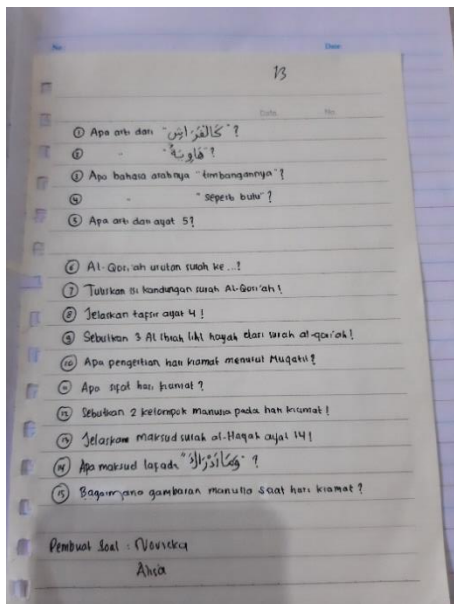 No
Date
13
Date
No
① Apa arti dari "كَالْفَرَاشِ"?
② " "هَاوِيَةٌ"?
③ Apa bahasa arabnya "timbangannya"?
④ " "seperti bulu"?
⑤ Apa arti dari ayat 5?
⑥ Al-Qori'ah urutan surah ke...!
⑦ Tuliskan isi kandungan surah AL-Qori'ah!
⑧ Jelaskan tafsir ayat 4!
⑨ Sebutkan 3 Al Ibrah lihl hayah dari surah al-qori'ah!
⑩ Apa pengertian hari kiamat menurut Muqatil?
⑪ Apa sifat hari kiamat?
⑫ Sebutkan 2 kelompok manusia pada hari kiamat!
⑬ Jelaskan maksud surah al-Haqah ayat 14!
⑭ Apa maksud lafadz "وَمَآ أَدْرَاكَ"?
⑮ Bagaimana gambaran manusia saat hari kiamat?
Pembuat Soal : Novieka